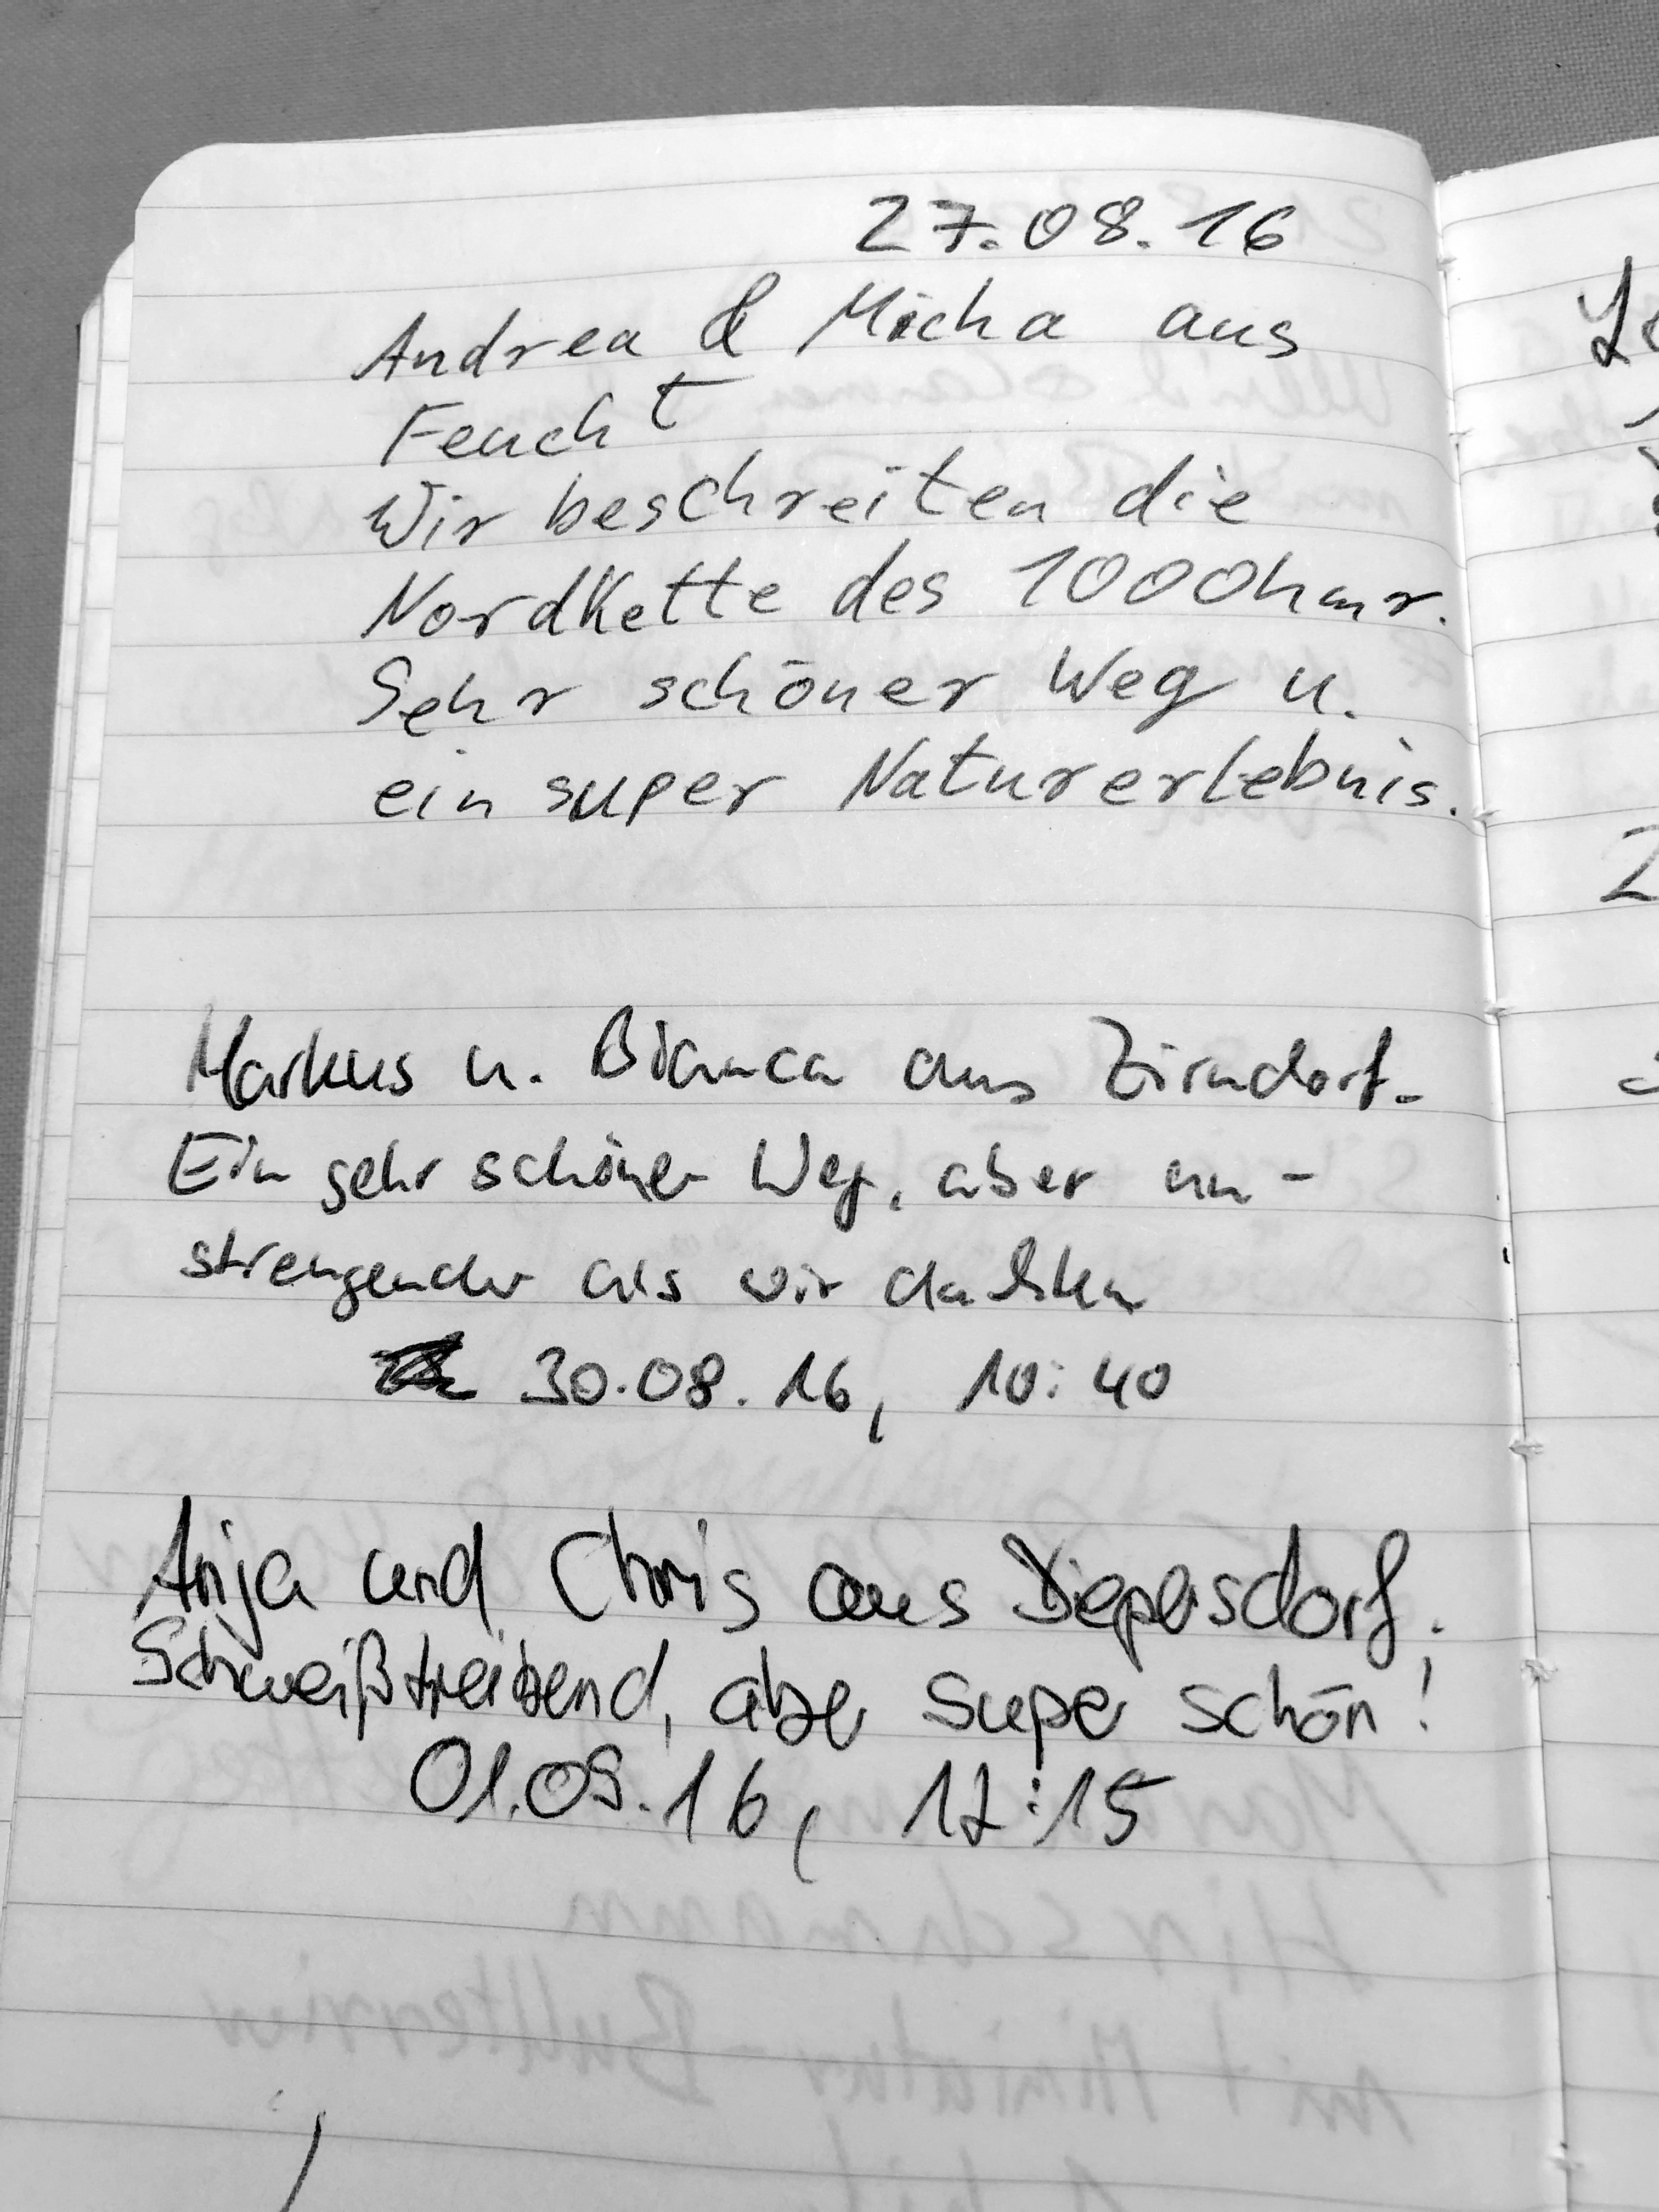 27.08.16
Andrea & Micha aus
Feucht
Wir beschreiten die
Nordkette des 1000hmr.
Sehr schöner Weg u.
ein super Naturerlebnis.
Markus u. Bianca aus Zirndorf.
Ein sehr schöner Weg, aber an-
strengender als wir dachten
30.08.16, 10:40
Anja und Chris aus Diepersdorf.
Schweißtreibend, aber super schön!
01.09.16, 12:15